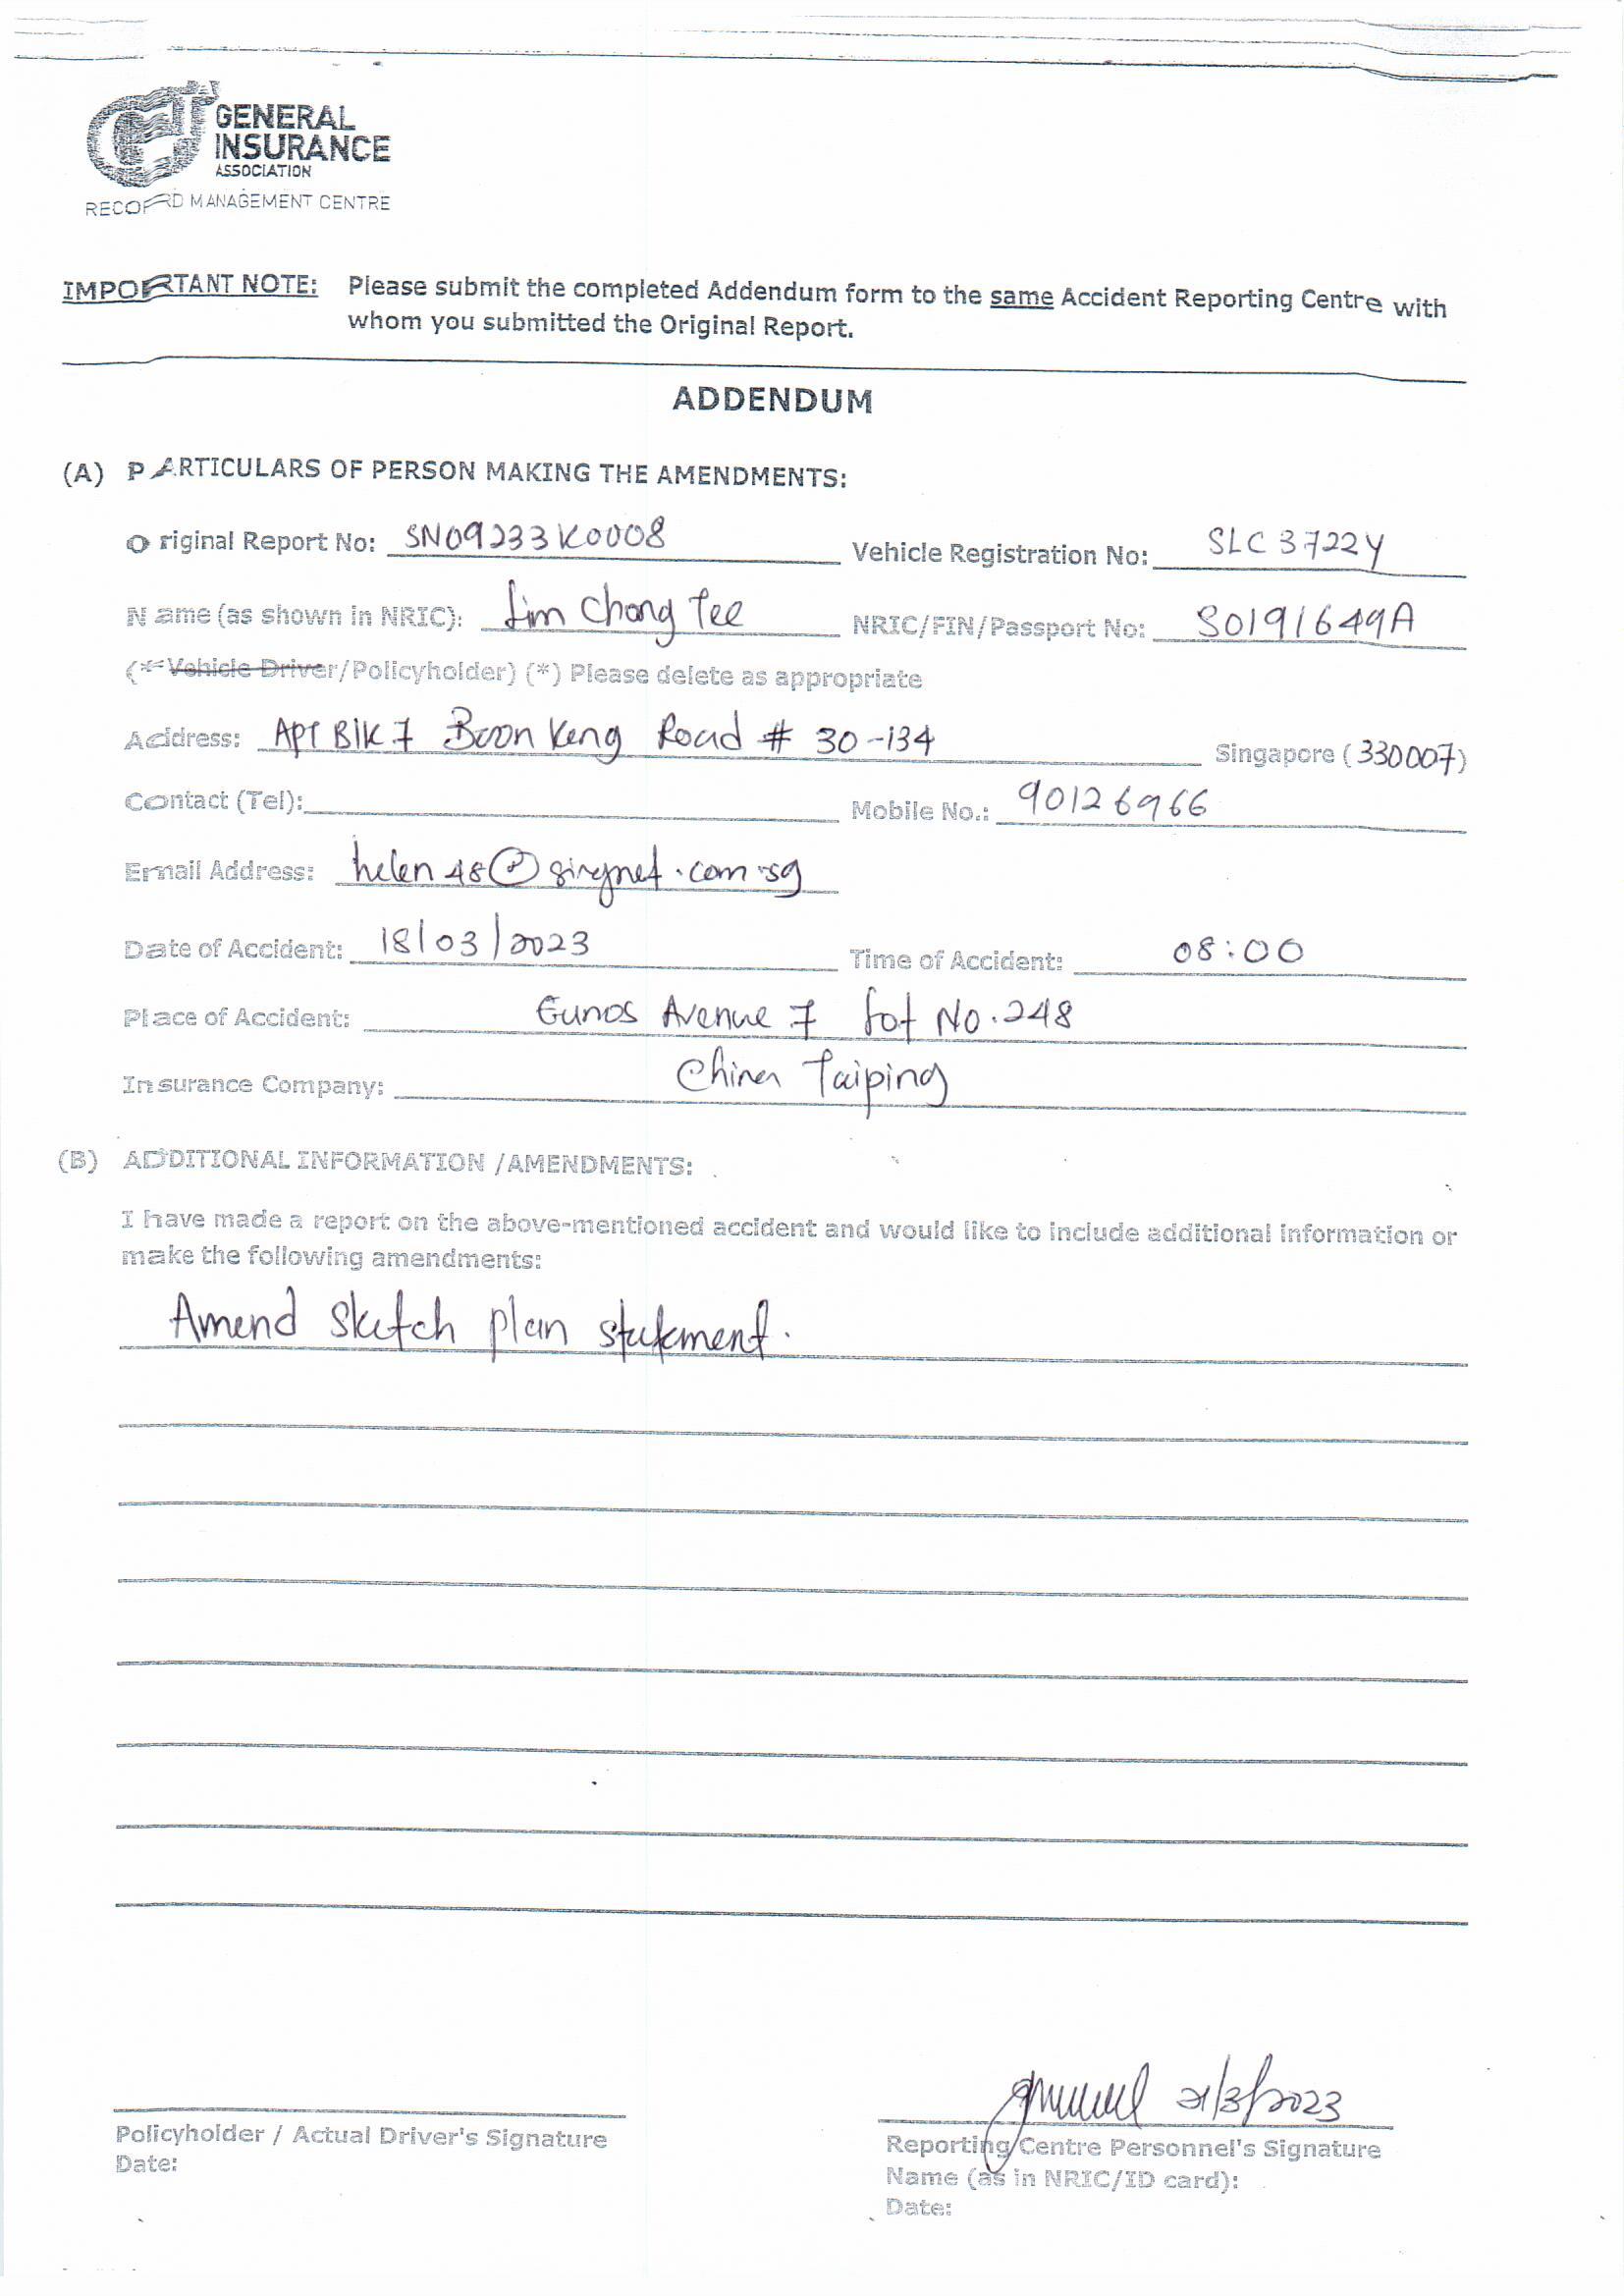 GENERAL
INSURANCE
ASSOCIATION
RECORD MANAGEMENT CENTRE
IMPORTANT NOTE: Please submit the completed Addendum form to the same Accident Reporting Centre with
whom you submitted the Original Report.
ADDENDUM
(A) PARTICULARS OF PERSON MAKING THE AMENDMENTS:
Original Report No: SN09233K0008 Vehicle Registration No: SLC3722Y
Name (as shown in NRIC): Lim Chong Tee NRIC/FIN/Passport No: S0191649A
(*Vehicle Driver/Policyholder) (*) Please delete as appropriate
Address: APT Blk 7 Boon Keng Road # 30-134 Singapore (330007)
Contact (Tel): Mobile No.: 90126966
Email Address: helen48@singnet.com.sg
Date of Accident: 18/03/2023 Time of Accident: 08:00
Place of Accident: Eunos Avenue 7 Lot No.248
Insurance Company: China Taiping
(B) ADDITIONAL INFORMATION /AMENDMENTS:
I have made a report on the above-mentioned accident and would like to include additional information or
make the following amendments:
Amend sketch plan statement.
21/3/2023
Policyholder / Actual Driver's Signature Reporting Centre Personnel's Signature
Date: Name (as in NRIC/ID card):
Date: